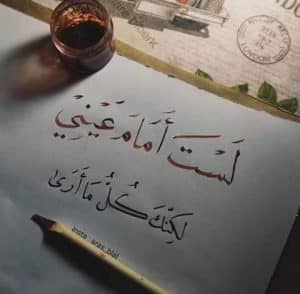 لَسْتَ أَمَامَ عَيْنِي
لَكِنَّكَ كُلُّ مَا أَرَىٰ
insta : aras_blal
LONDON